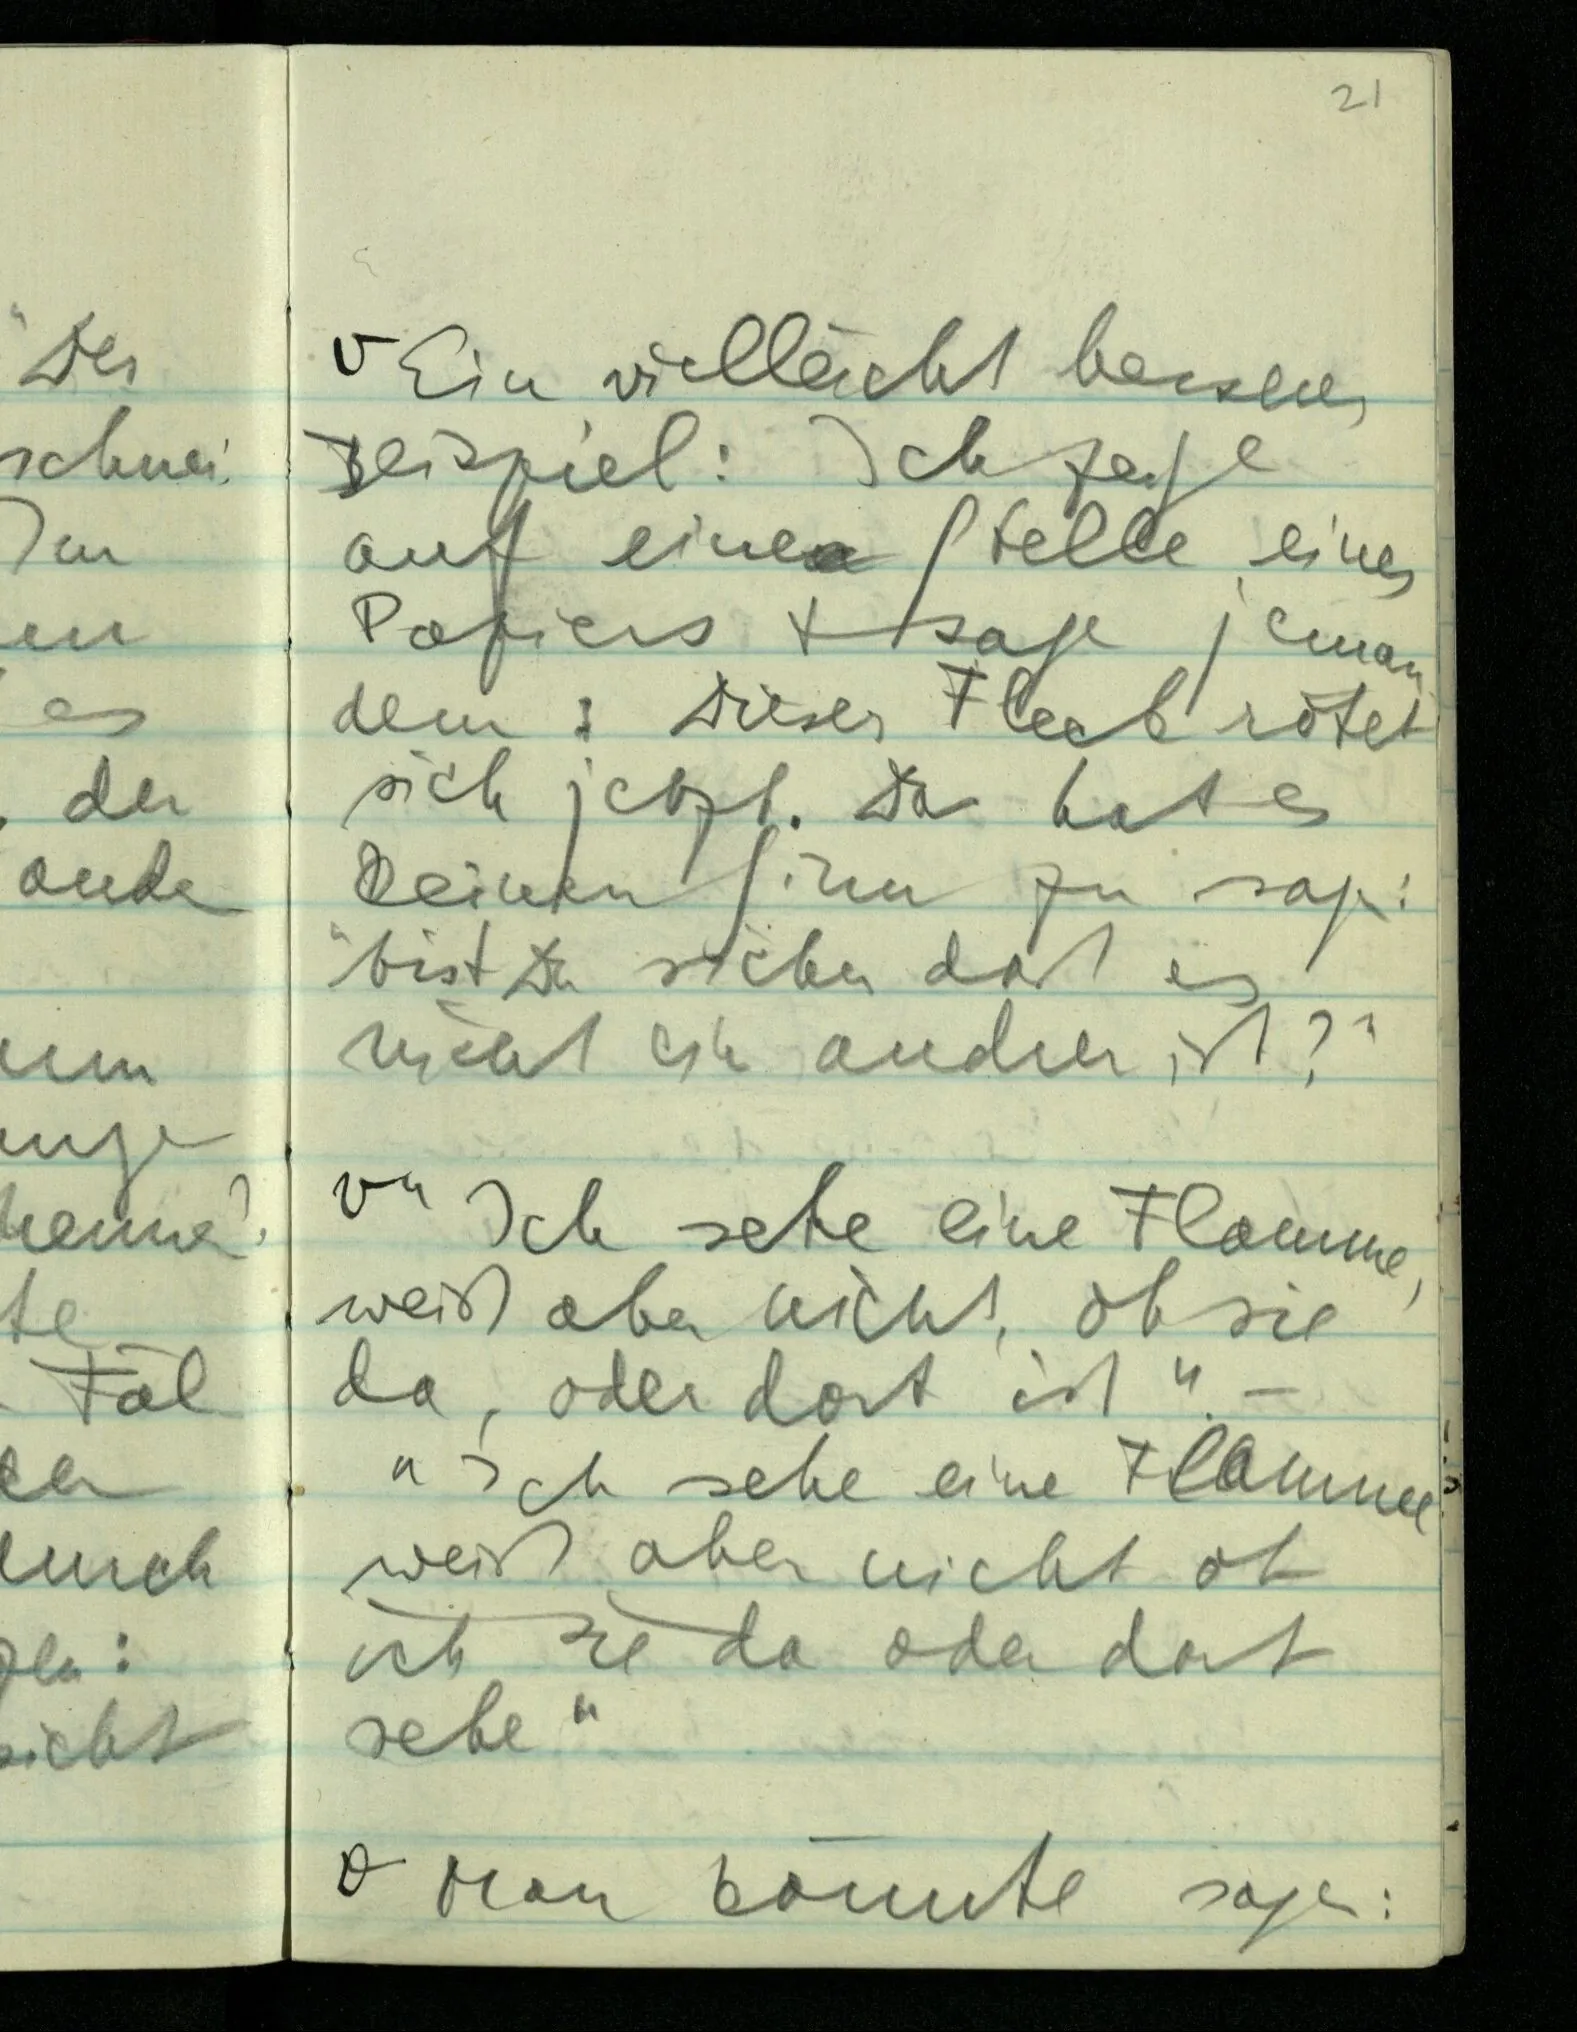 21
"Der
schnei
en
es
der
ande
v Ein vielleicht besseres
Beispiel: Ich zeige
auf eine Stelle eines
Papiers + sage jeman
dem: Dieser Fleck rötet
sich jetzt. Da hat es
keinen Sinn zu sagen:
"bist Du sicher daß es
nicht ein andrer ist?"
v "Ich sehe eine Flamme,
weiß aber nicht, ob sie
da, oder dort ist". –
"Ich sehe eine Flamme
weiß aber nicht ob
ich sie da oder dort
sehe"
Man könnte sagen:
te
Fäl
durch